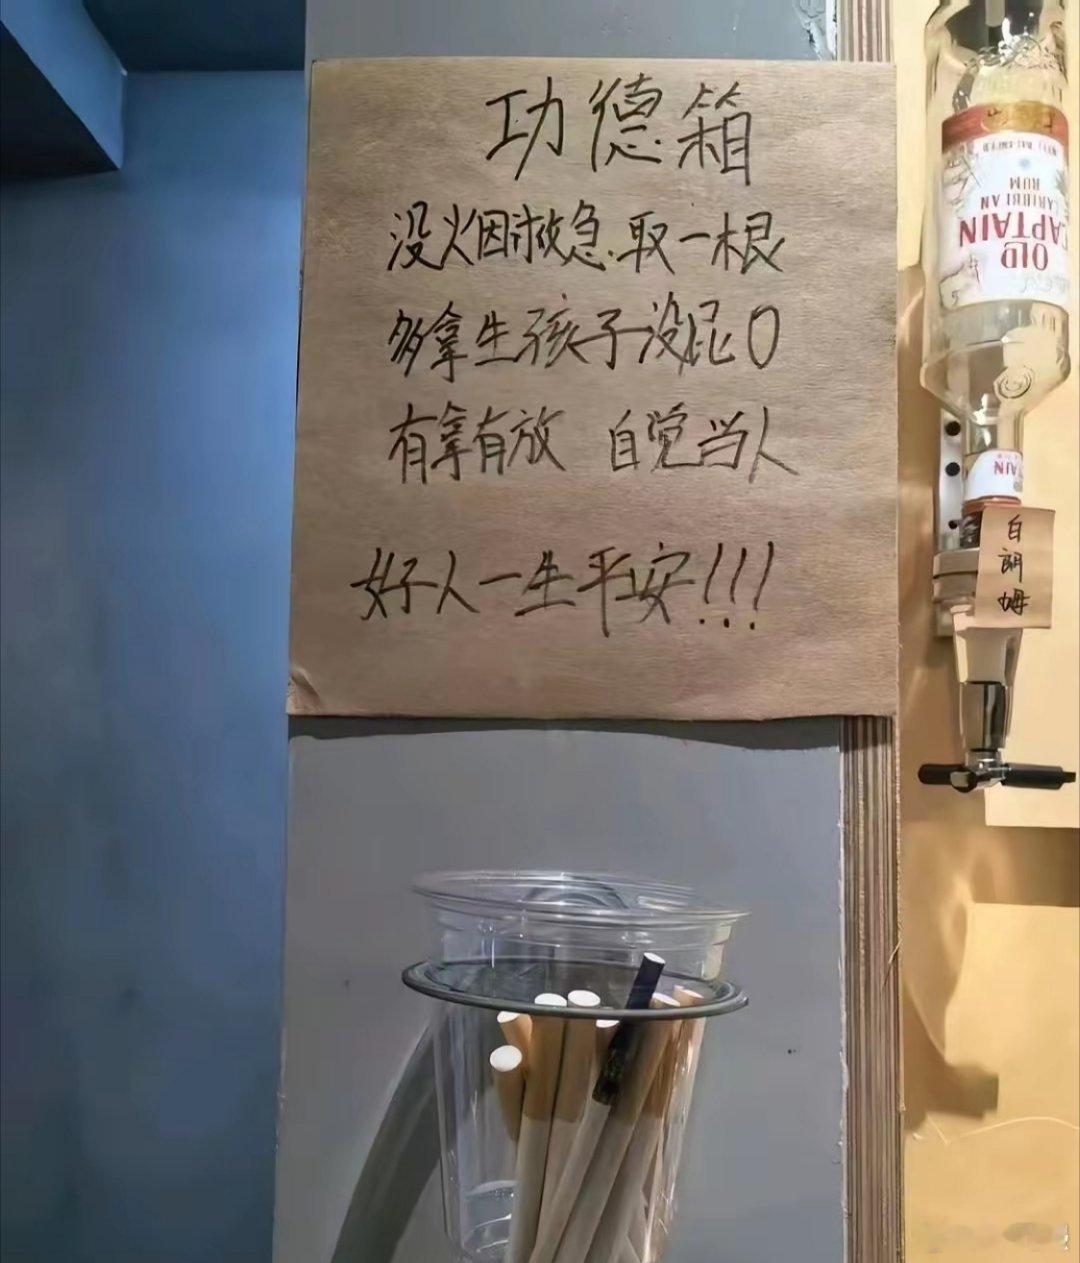 功德箱
没火因救急.取一根
多拿生孩子没屁O
有拿有放 自觉当人
好人一生平安!!!
OLD
CAPTAIN
CARIBBEAN
RUM
白朗姆